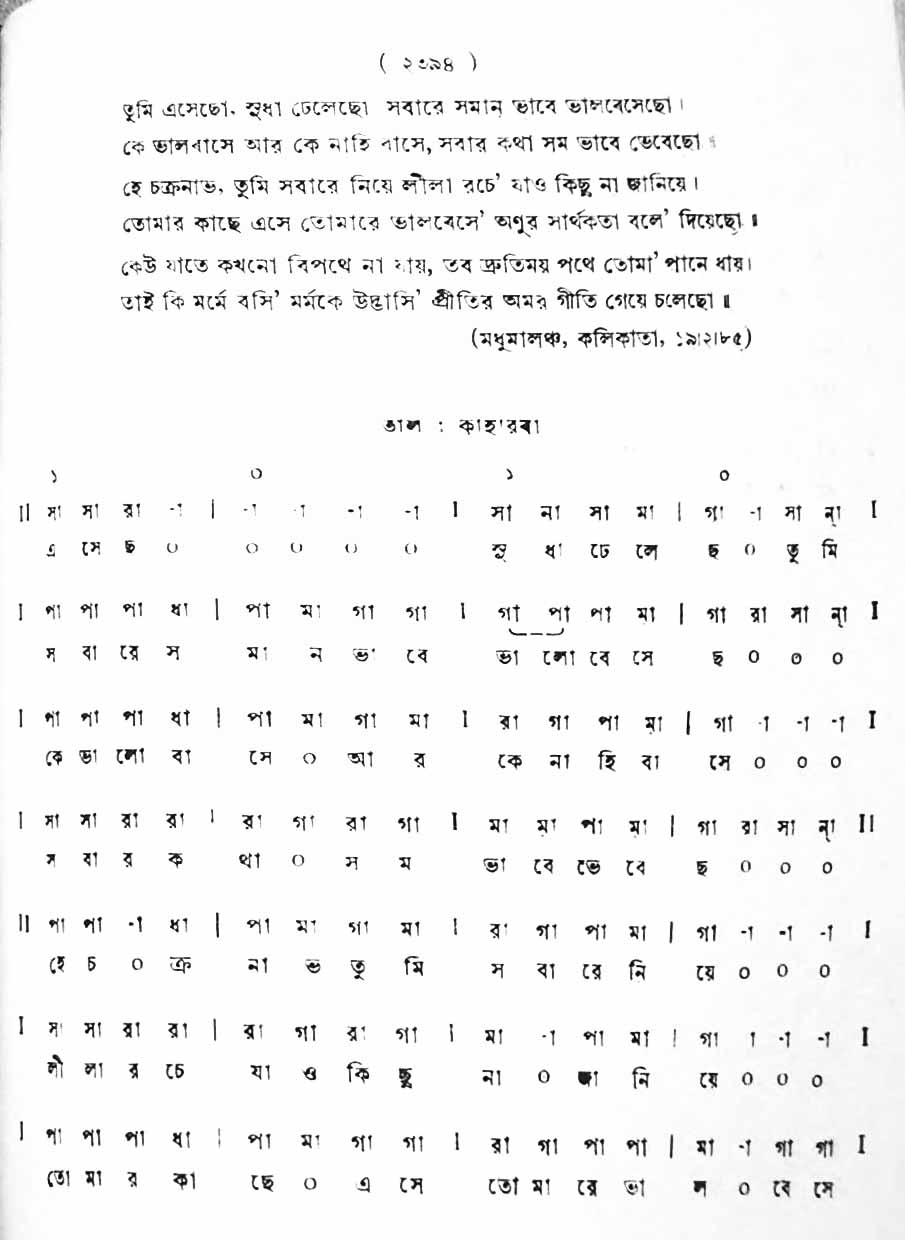 ( ২৩৯৪ )
তুমি এসেছো, সুধা ঢেলেছো সবারে সমান্ ভাবে ভালবেসেছো ।
কে ভালবাসে আর কে নাহি বাসে, সবার কথা সম ভাবে ভেবেছো ॥
হে চক্রনাভ, তুমি সবারে নিয়ে লীলা রচে' যাও কিছু না জানিয়ে ।
তোমার কাছে এসে তোমারে ভালবেসে' অণুর সার্থকতা বলে' দিয়েছো ॥
কেউ যাতে কখনো বিপথে না যায়, তব দ্রুতিময় পথে তোমা' পানে ধায়।
তাই কি মর্মে বসি' মর্মকে উদ্ভাসি' প্রীতির অমর গীতি গেয়ে চলেছো ॥
(মধুমালঞ্চ, কলিকাতা, ১৯।২।৮৫)
তাল : কাহার্'রবা
১ ০ ১ ০
II সা সা রা -া | -া -া -া -া I সা না সা মা | গা -া সা ন্া I
এ সে ছ ০ ০ ০ ০ ০ সু ধা ঢে লে ছ ০ তু মি
I পা পা পা ধা | পা মা গা গা I গা পা পা মা | গা রা সা ন্া I
স বা রে স মা ন ভা বে ভা লো বে সে ছ ০ ০ ০
I পা পা পা ধা | পা মা গা মা I রা গা পা মা | গা -া -া -া I
কে ভা লো বা সে ০ আ র কে না হি বা সে ০ ০ ০
I সা সা রা রা | রা গা রা গা I মা মা পা মা | গা রা সা ন্া II
স বা র ক থা ০ স ম ভা বে ভে বে ছ ০ ০ ০
II পা পা -া ধা | পা মা গা মা I রা গা পা মা | গা -া -া -া I
হে চ ০ ক্র না ভ তু মি স বা রে নি য়ে ০ ০ ০
I সা সা রা রা | রা গা রা গা I মা -া পা মা | গা া -া -া I
লী লা র চে যা ও কি ছু না ০ জা নি য়ে ০ ০ ০
I পা পা পা ধা | পা মা গা গা I রা গা পা পা | মা -া গা গা I
তো মা র কা ছে ০ এ সে তো মা রে ভা ল ০ বে সে